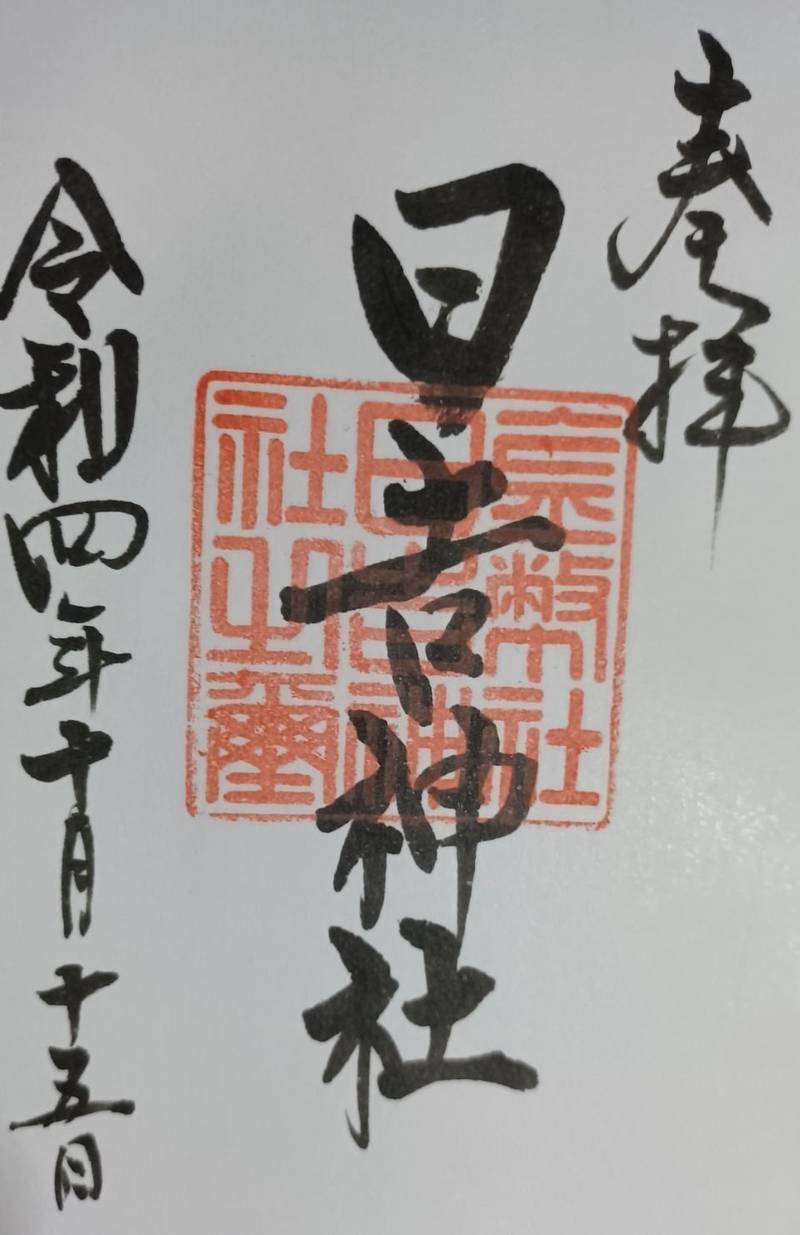 奉拝
日吉神社
幣社
日吉神
社之璽
令和四年十月十五日